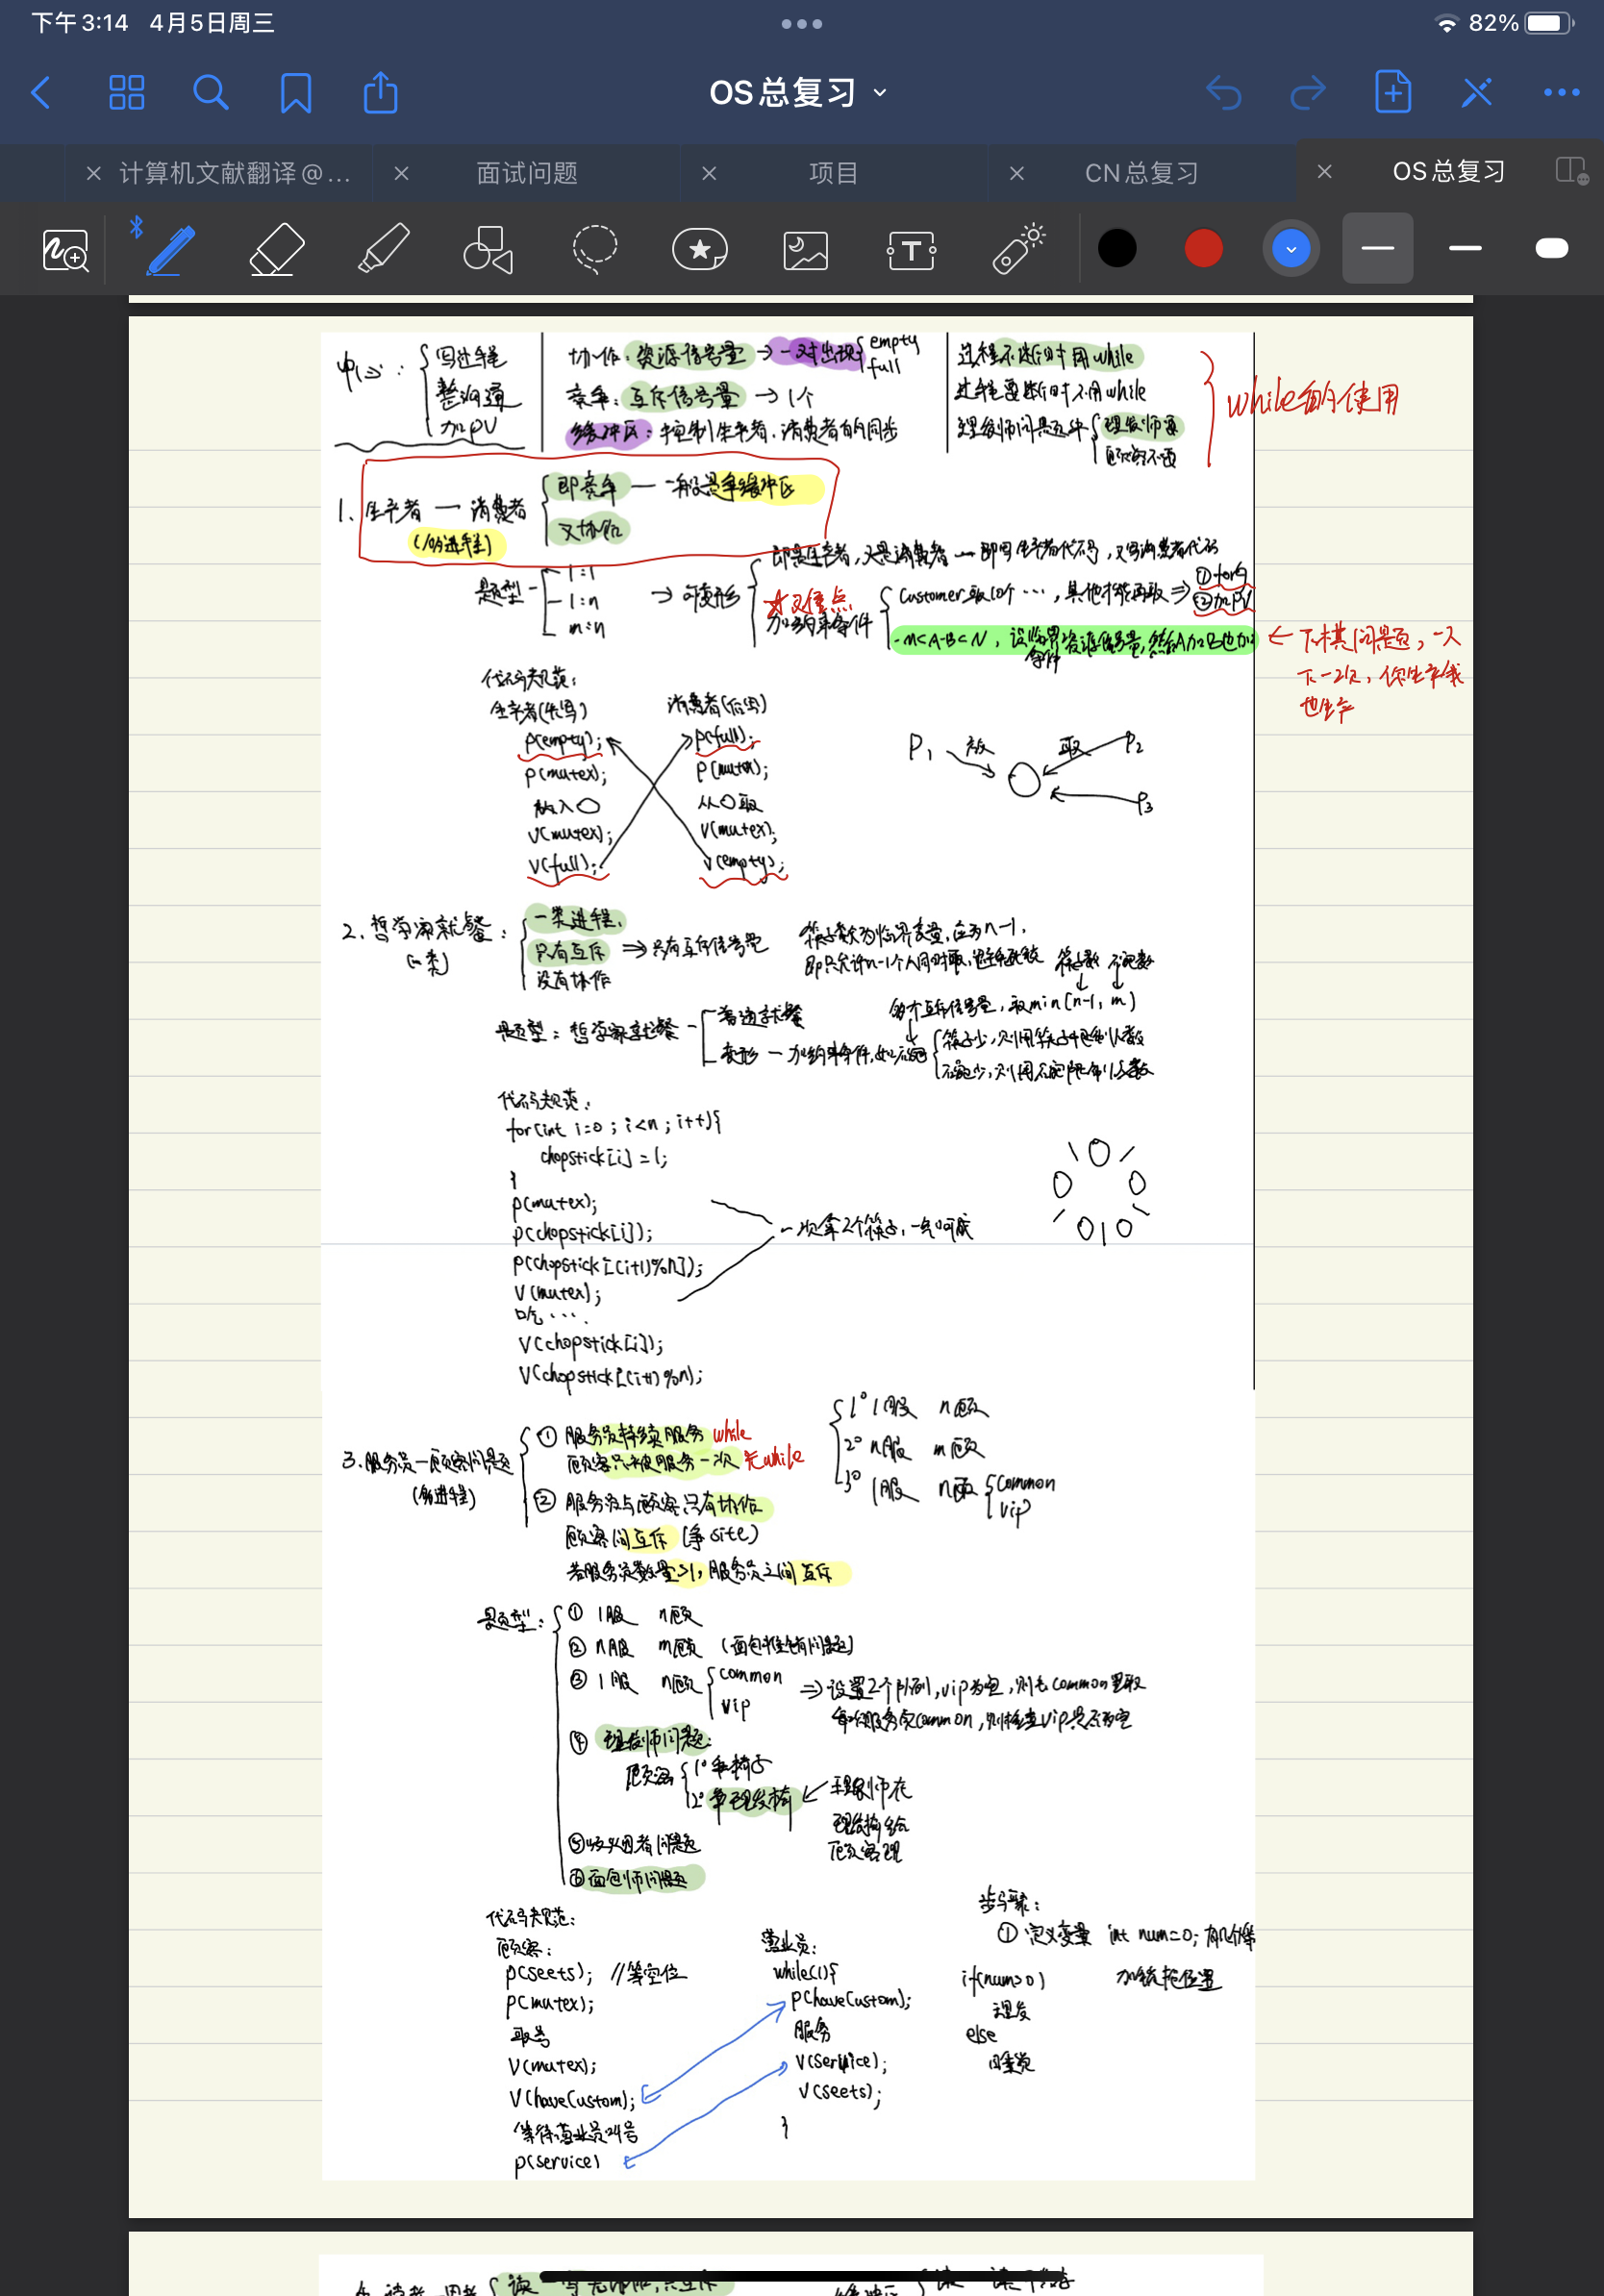 下午3:14 4月5日周三
82%
OS总复习
计算机文献翻译@...
面试问题
项目
CN总复习
OS总复习
步骤: 写进程
整沟通
加PV
协作:资源信号量→一对出现 empty
full
竞争:互斥信号量→1个
缓冲区:控制生产者、消费者的同步
过程不断时用while
过程要断时不用while
理发师问题这种 理发师要
顾客不要
while的使用
1、生产者—消费者
(n进程)
即竞争—一般是争缓冲区
又协作
题型
1:1
1:n
m:n
→可变形
即是生产者,又是消费者—即写生产者代码,又写消费者代码
加约束条件
Customer取10个…,其他才能再取⇒①for
②加PV
-M<A-B<N,设临界资源信号量,然后A加B也加
条件
←下棋问题,一人
下一次,你生产我
也生产
代码规范:
生产者(先写)
消费者(后写)
P(empty);
P(full);
P(mutex);
P(mutex);
放入○
从○取
V(mutex);
V(mutex);
V(full);
V(empty);
P1 放
取 P2
P3
2、哲学家就餐:
(n类)
一类进程、
只有互斥
没有协作
⇒只有互斥信号量
筷子数为临界变量,应为n-1,
即只允许n-1个人同时取,避免死锁
筷子数 石碗数
多个互斥信号量,取min(n-1, m)
题型:哲学家就餐
普通就餐
变形—加约束条件,如石碗
筷子少,则用筷子控制人数
石碗少,则用石碗限制人数
代码规范:
for(int i=0;i<n;i++){
chopstick[i]=1;
}
P(mutex);
P(chopstick[i]);
P(chopstick[(i+1)%n]);
V(mutex);
吃…
V(chopstick[i]);
V(chopstick[(i+1)%n);
一次拿2个筷子,一气呵成
3.服务员—顾客问题
(多进程)
①服务员持续服务 while
顾客只被服务一次 无while
②服务员与顾客只有协作
顾客间互斥(争site)
若服务员数量>1,服务员之间互斥
1° 1服 n顾
2° n服 m顾
3° 1服 n顾 common
vip
题型:
①1服 n顾
②n服 m顾 (面包推销问题)
③1服 n顾 common
vip
⇒设置2个队列,vip为空,则去common里取
每次服务完common,则检查vip是否为空
④理发师问题:
顾客 1°争椅子
2°争理发椅
理发师在
理发椅给
顾客理
⑥面包师问题
代码规范:
顾客:
P(seets); //等空位
P(mutex);
取号
V(mutex);
V(haveCustom);
等待营业员叫号
P(service)
营业员:
while(1){
P(haveCustom);
服务
V(service);
V(seets);
}
步骤:
①定义变量 int num=0;有几个等
if(num>0)
理发
else
睡觉